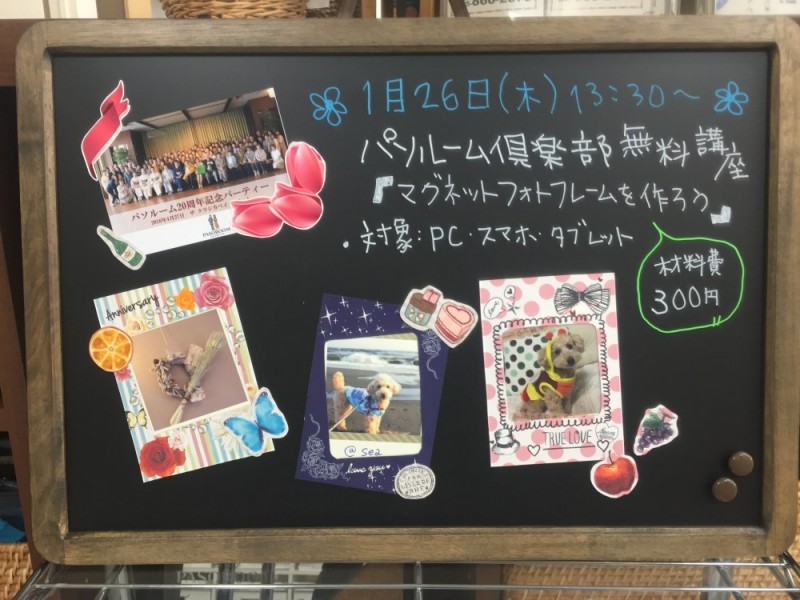 1月26日(木)13:30〜
パソルーム倶楽部無料講座
『マグネットフォトフレームを作ろう』
・対象:PC・スマホ・タブレット
材料費
300円
パソルーム20周年記念パーティー
Anniversary
@sea
love you
TRUE LOVE